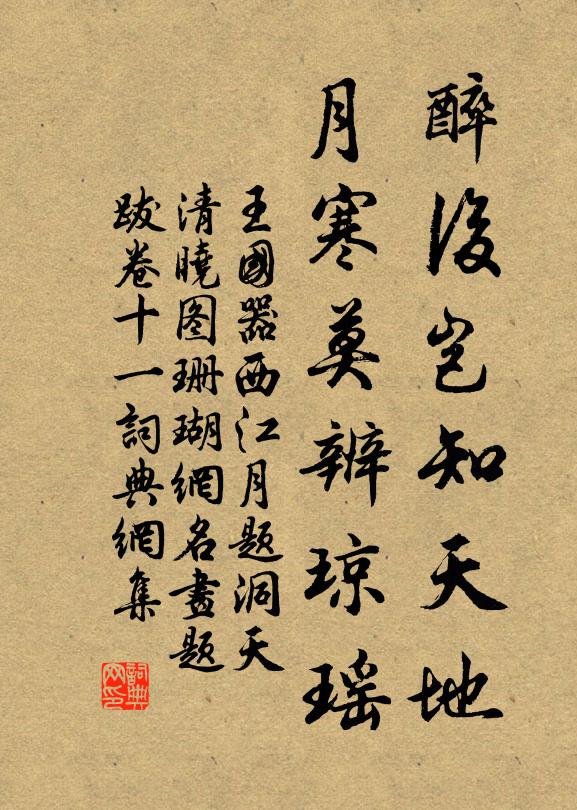 醉後豈知天地
月寒莫辨琼瑶
王國器西江月题洞天
清曉图珊瑚網名畫题
跋卷十一詞典網集
詞典网印